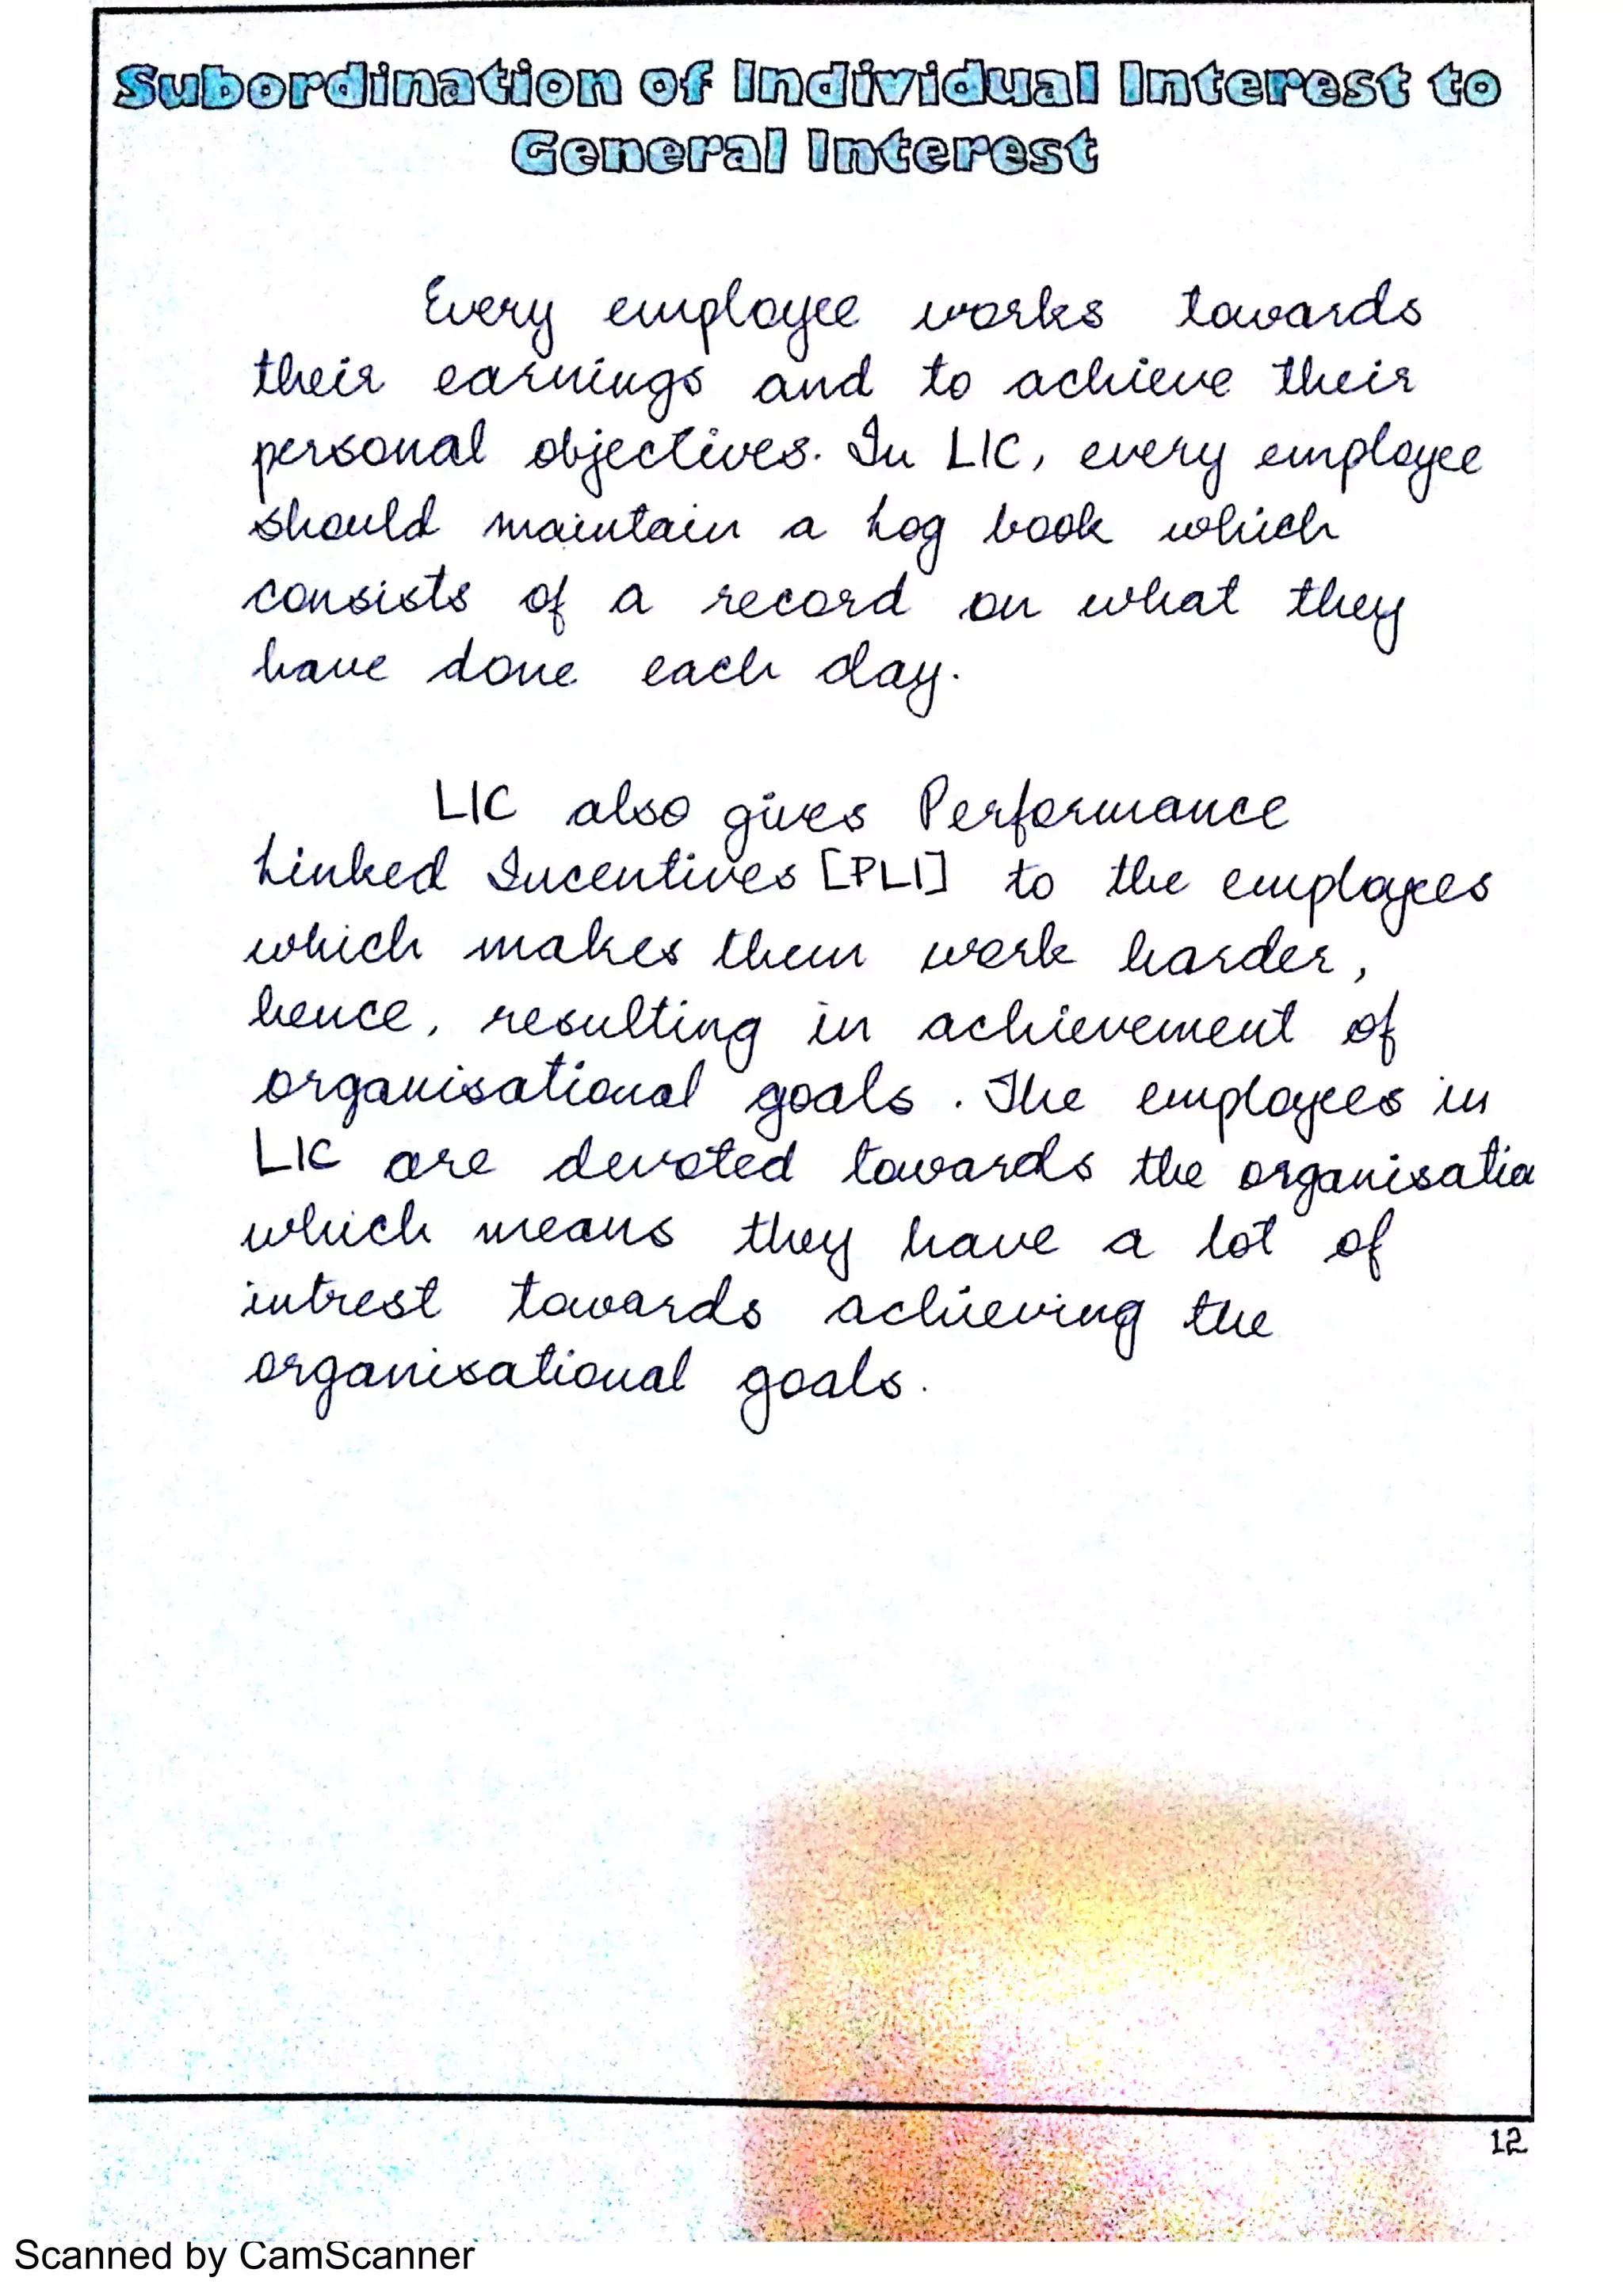 Subordination of Individual Interest to
General Interest
Every employee works towards
their earnings and to achieve their
personal objectives. In LIC, every employee
should maintain a Log book which
consists of a record on what they
have done each day.
LIC also gives Performance
Linked Incentives [PLI] to the employees
which makes them work harder,
hence, resulting in achievement of
organisational goals. The employees in
LIC are devoted towards the organisatio
which means they have a lot of
intrest towards achieving the
organisational goals.
12
Scanned by CamScanner